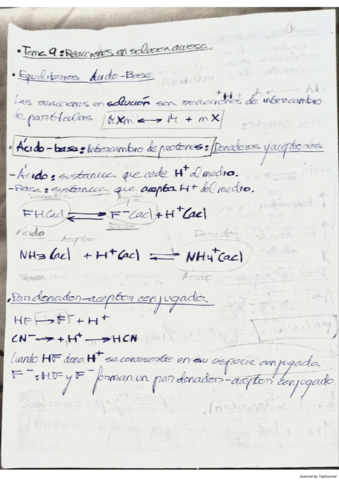 • Tema 9: Reacciones en solución acuosa
• Equilibrios Ácido-Base
Las reacciones en solución son reacciones de intercambio
de partículas mX
• Ácido-base: Intercambio de protones: Donadores y aceptores
- Ácido: sustancia que cede H⁺ al medio.
- Base: sustancia que acepta H⁺ del medio.
FH(ac) ⇌ F⁻(ac) + H⁺(ac)
Ácido Base
NH3(ac) + H⁺(ac) ⇌ NH4⁺(ac)
Base Ácido
• Par donador-aceptor conjugado
HF → F⁻ + H⁺
CN⁻ → + H⁺ → HCN
Cuando HF dona H⁺ se convierte en su especie conjugada
F⁻: HF y F⁻ forman un par donador-aceptor conjugado
Scanned by TapScanner